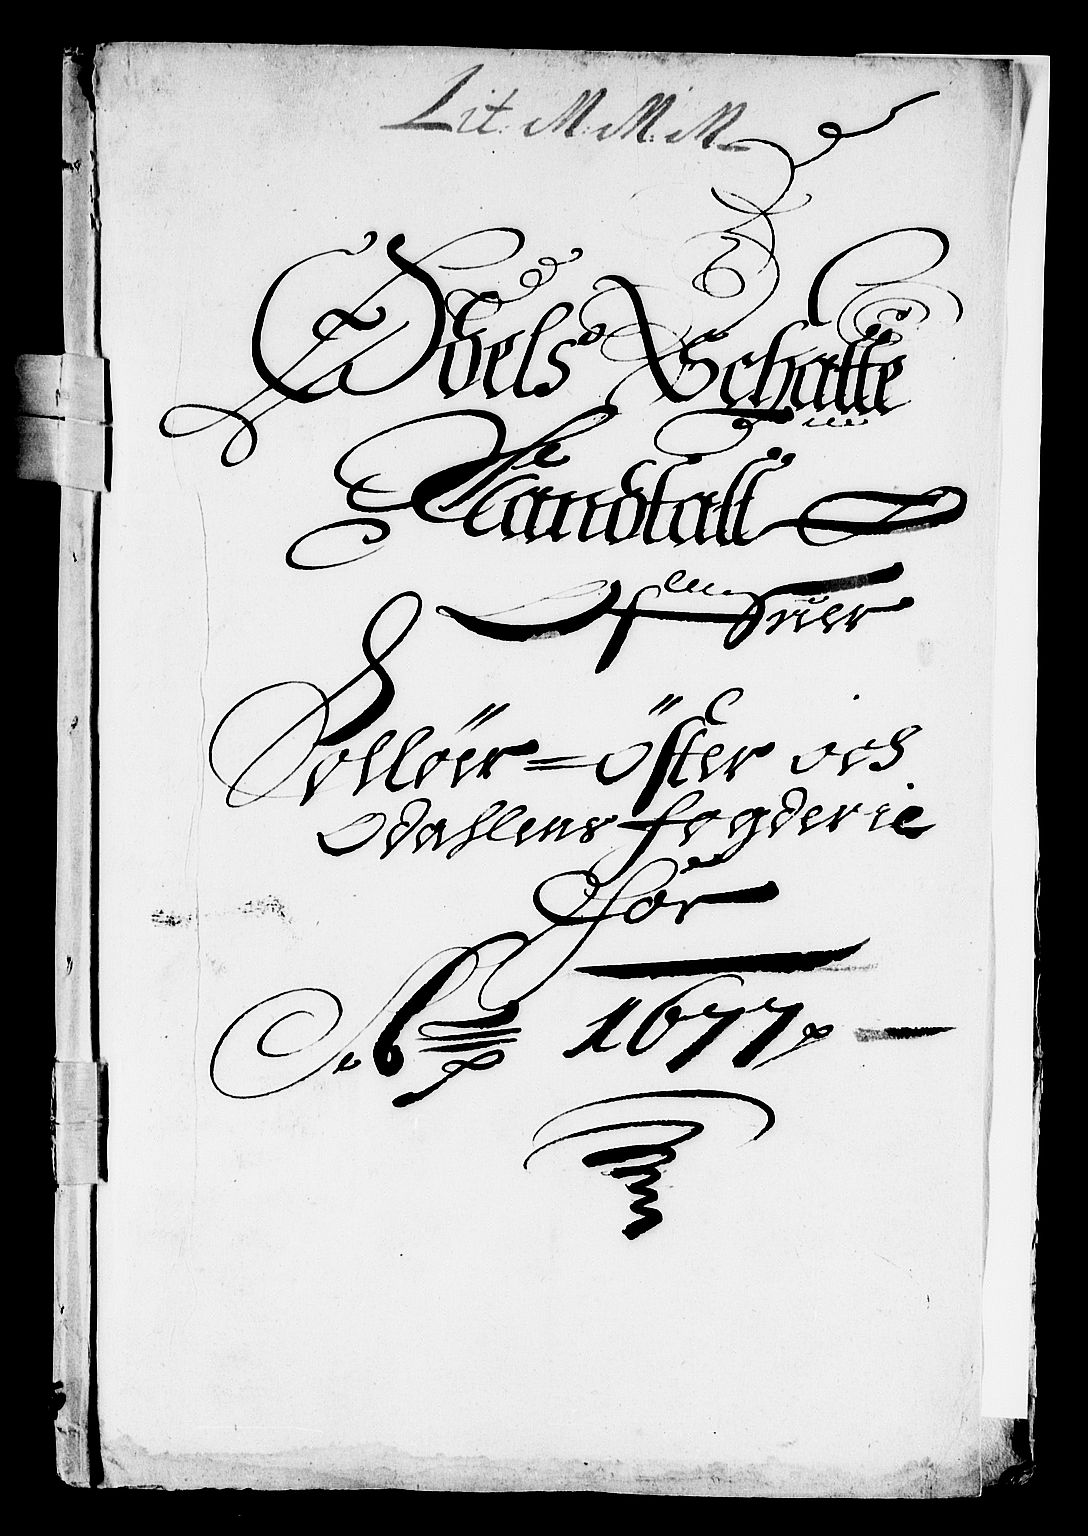 Lit. M. M. M.
Odels Schatte
Mandtall
Ofuer
Solløer = öster och
Odahlens fogderie
for
Ao 1677